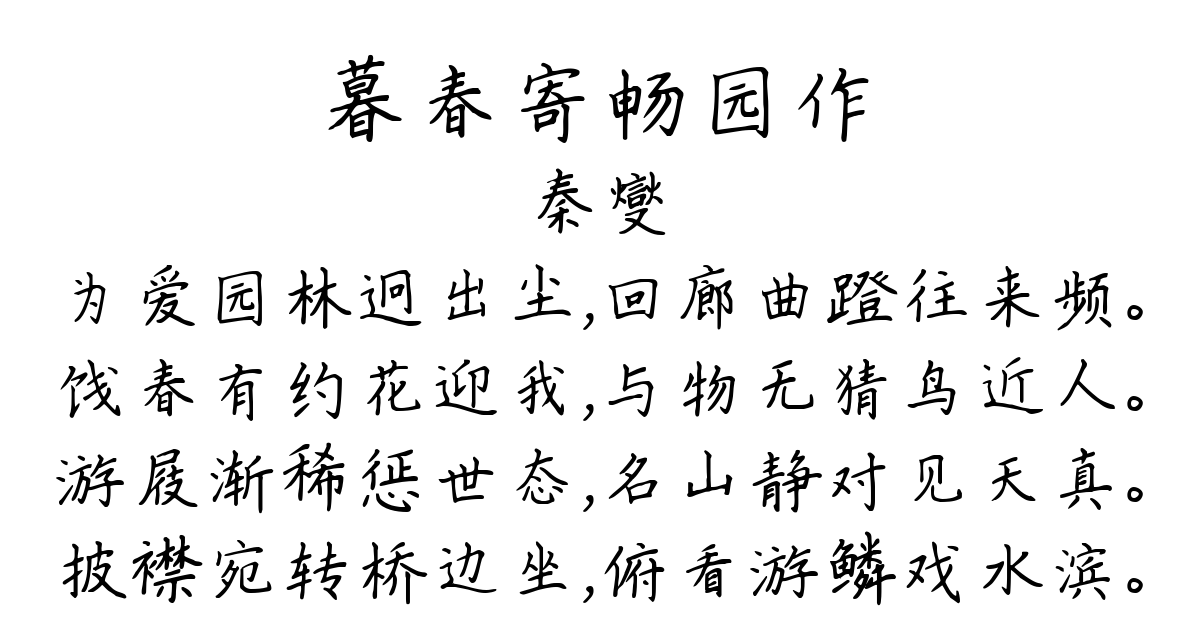 暮春寄畅园作
秦燮
为爱园林迥出尘,回廊曲蹬往来频。
饯春有约花迎我,与物无猜鸟近人。
游屐渐稀惩世态,名山静对见天真。
披襟宛转桥边坐,俯看游鳞戏水滨。